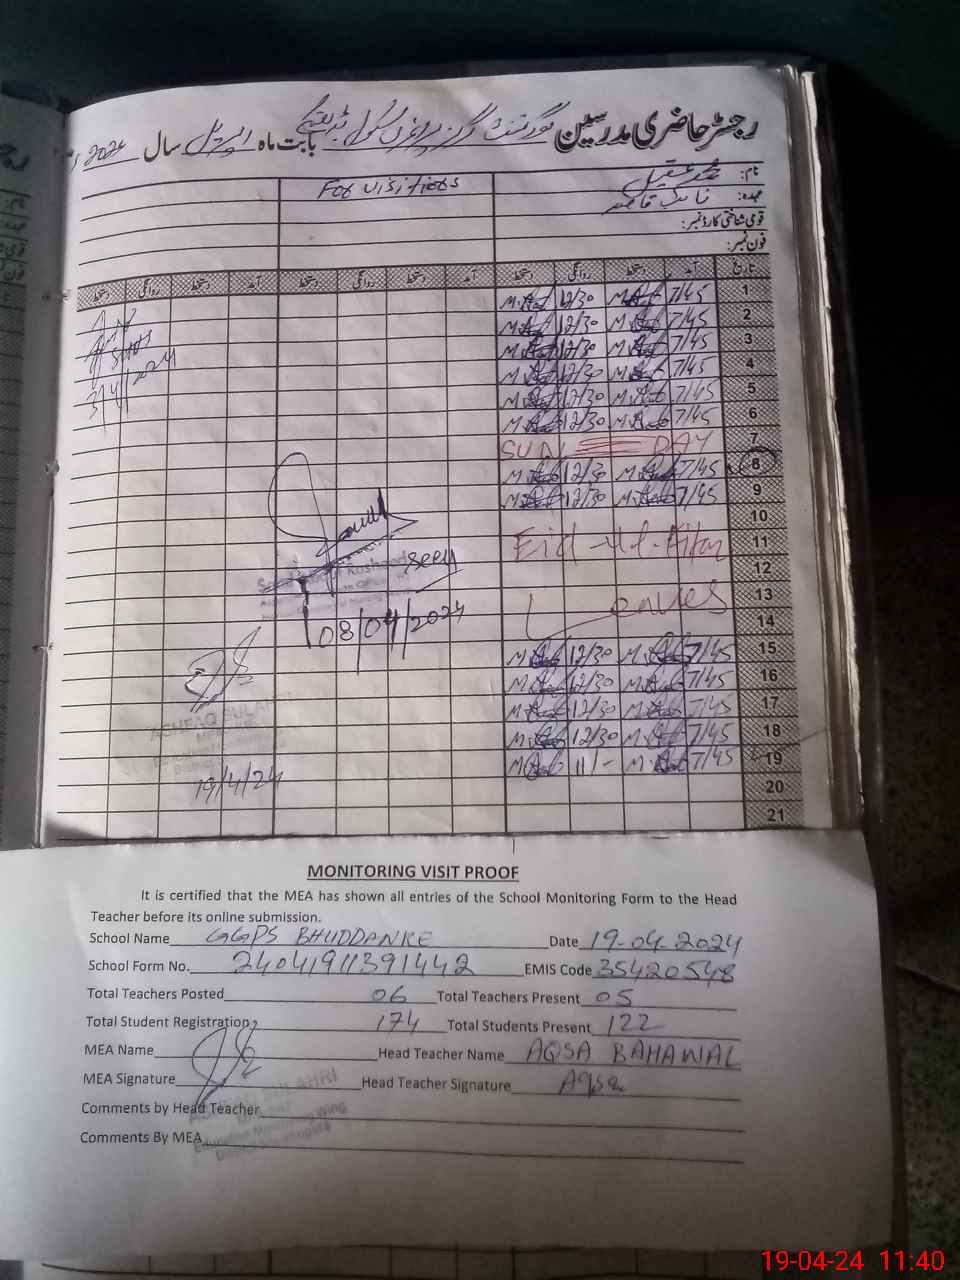 رجسٹر حاضری مدرسین گورنمنٹ گرلز پرائمری سکول بابت ماہ اپریل سال 2024ء
نام: محمد عقیل
عہدہ: نائب قاصد
قومی شناختی کارڈ نمبر:
فون نمبر:
For visitiors
تاریخ آمد دستخط روانگی دستخط آمد دستخط روانگی دستخط آمد دستخط روانگی دستخط
1 7/45 12/30
2 7/45 12/30
3 7/45 12/30
4 7/45 12/30
5 7/45 12/30
6 7/45 12/30
7 SUN DAY
8 7/45 12/30
9 7/45 12/30
10
11 Eid-ul-Fitar
12
13 Leaves
14
15 7/45 12/30
16 7/45 12/30
17 7/45 12/30
18 7/45 12/30
19 7/45 11/-
20
21
3/4/2024
seen
08/04/2024
ASHFAQ SULAHRI
19/4/24
MONITORING VISIT PROOF
It is certified that the MEA has shown all entries of the School Monitoring Form to the Head
Teacher before its online submission.
School Name GGPS BHUDDANKE Date 19-04-2024
School Form No. 24041911391442 EMIS Code 35420548
Total Teachers Posted 06 Total Teachers Present 05
Total Student Registration 174 Total Students Present 122
MEA Name Head Teacher Name AQSA BAHAWAL
MEA Signature Head Teacher Signature Aqsa
Comments by Head Teacher
ASHFAQ SULAHRI
Education Monitoring Wing
Comments By MEA
19-04-24 11:40